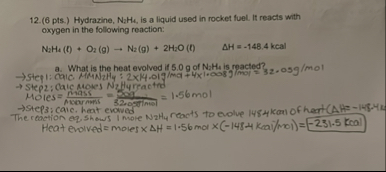 12.(6 pts.) Hydrazine, N₂H₄, is a liquid used in rocket fuel. It reacts with
oxygen in the following reaction:
N₂H₄ (ℓ) + O₂ (g) → N₂ (g) + 2H₂O (ℓ) ΔH = -148.4 kcal
a. What is the heat evolved if 5.0 g of N₂H₄ is reacted?
→Step1: calc. MMN₂H₄: 2x14.01g/mol + 4x1.008g/mol = 32.05g/mol
→Step2: Calc Moles N₂H₄ reacted
Moles = mass / Molar mass = 50g / 32.05g/mol = 1.56mol
→Step3: calc. heat evolved
The reaction eq. shows 1 mole N₂H₄ reacts to evolve 148.4 kcal of heat (ΔH = -148.4 k
Heat evolved = moles x ΔH = 1.56mol x (-148.4 kcal/mol) = -231.5 kcal